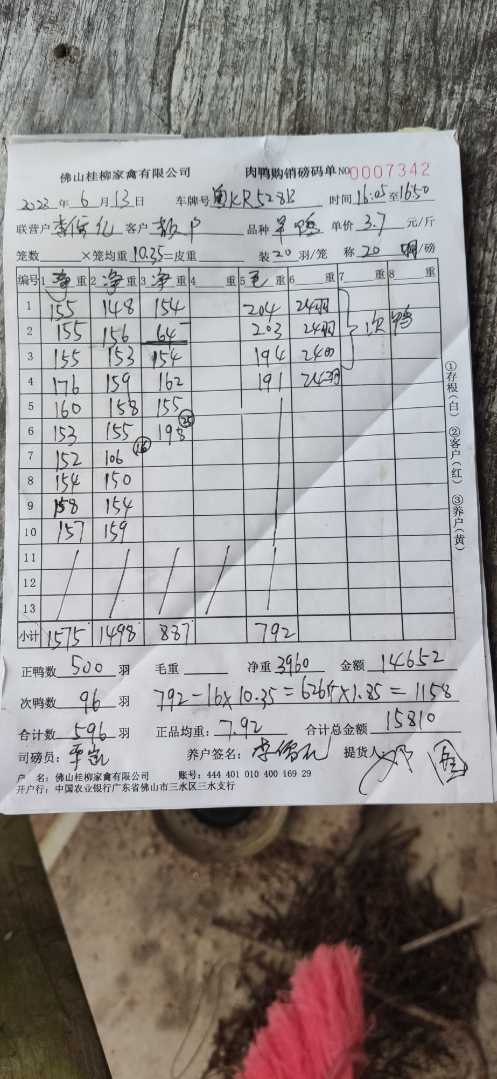 佛山桂柳家禽有限公司 肉鸭购销磅码单 NO0007342
2022年6月13日 车牌号 粤KR528B 时间 16:05至1650
联营户 客户 散户 品种 羊鸭 单价 3.7 元/斤
笼数 ×笼均重 10.35=皮重 装20羽/笼 称20 /磅
编号 1 净 重 2 净 重 3 净 重 4 重 5 毛 重 6 重 7 重 8 重
1 155 148 154 204 24羽 次鸭
2 155 156 64 203 24羽
3 155 153 154 194 24羽
4 176 159 162 191 24羽
5 160 158 155
6 153 155 198 25
7 152 106
8 154 150
9 158 154
10 157 159
11
12
13
小计 1575 1498 887 792
正鸭数 500 羽 毛重 净重 3960 金额 14652
次鸭数 96 羽 792-16×10.35=626.4×1.85=1158
合计数 596 羽 正品均重: 7.92 合计总金额 15810
司磅员: 养户签名: 提货人:
户 名: 佛山桂柳家禽有限公司 账号: 444 401 010 400 169 29
开户行: 中国农业银行广东省佛山市三水区三水支行
①存根(白) ②客户(红) ③养户(黄)